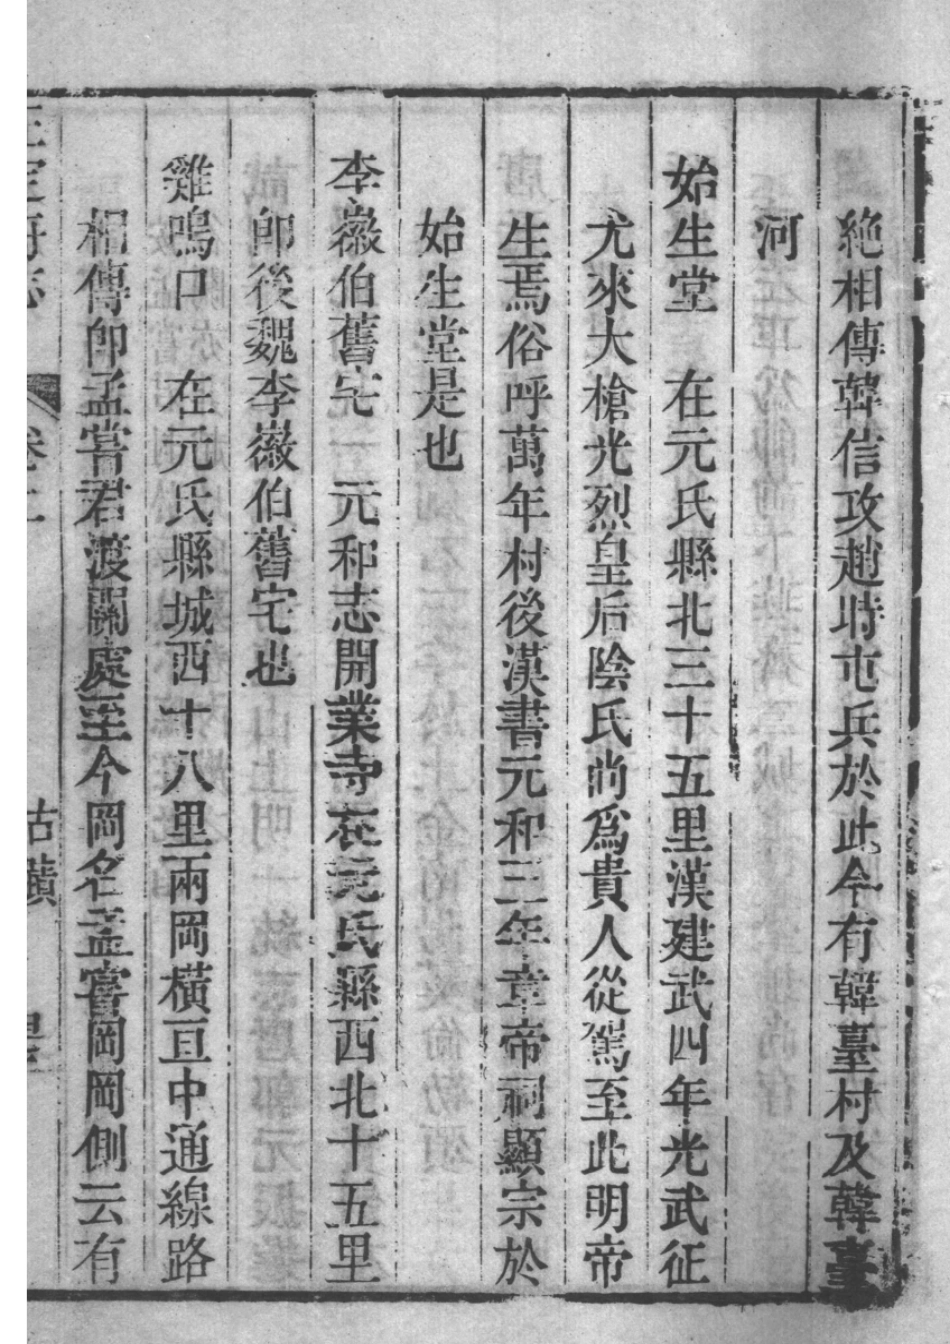 絶相傳韓信攻趙時屯兵於此今有韓臺村及韓臺
河
始生堂　在元氏縣北三十五里漢建武四年光武征
尤來大槍光烈皇后陰氏尚爲貴人從駕至此明帝
生焉俗呼萬年村後漢書元和三年章帝祠顯宗於
始生堂是也
李徽伯舊宅　元和志開業寺在元氏縣西北十五里
卽後魏李徽伯舊宅也
雞鳴口　在元氏縣城西十八里兩岡橫亘中通線路
相傳卽孟嘗君渡關處至今岡名孟嘗岡岡側云有
古蹟